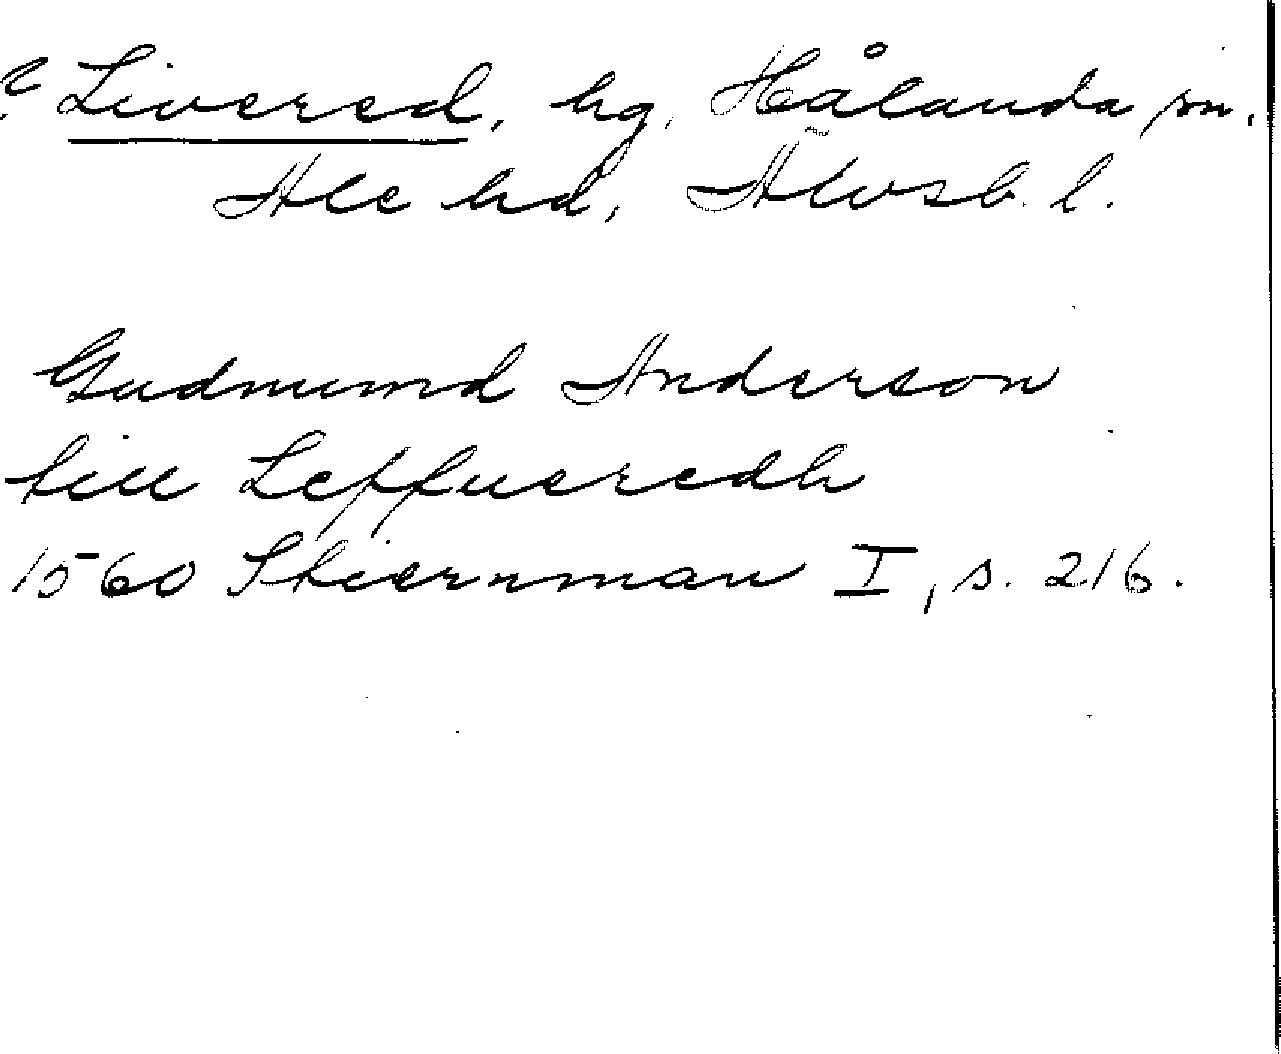 ? Livered, hg, Hålanda sn.
Ale hd, Älvsb. l.
Gudmund Anderson
till Leffueredh
1560 Stiernman I, s. 216.